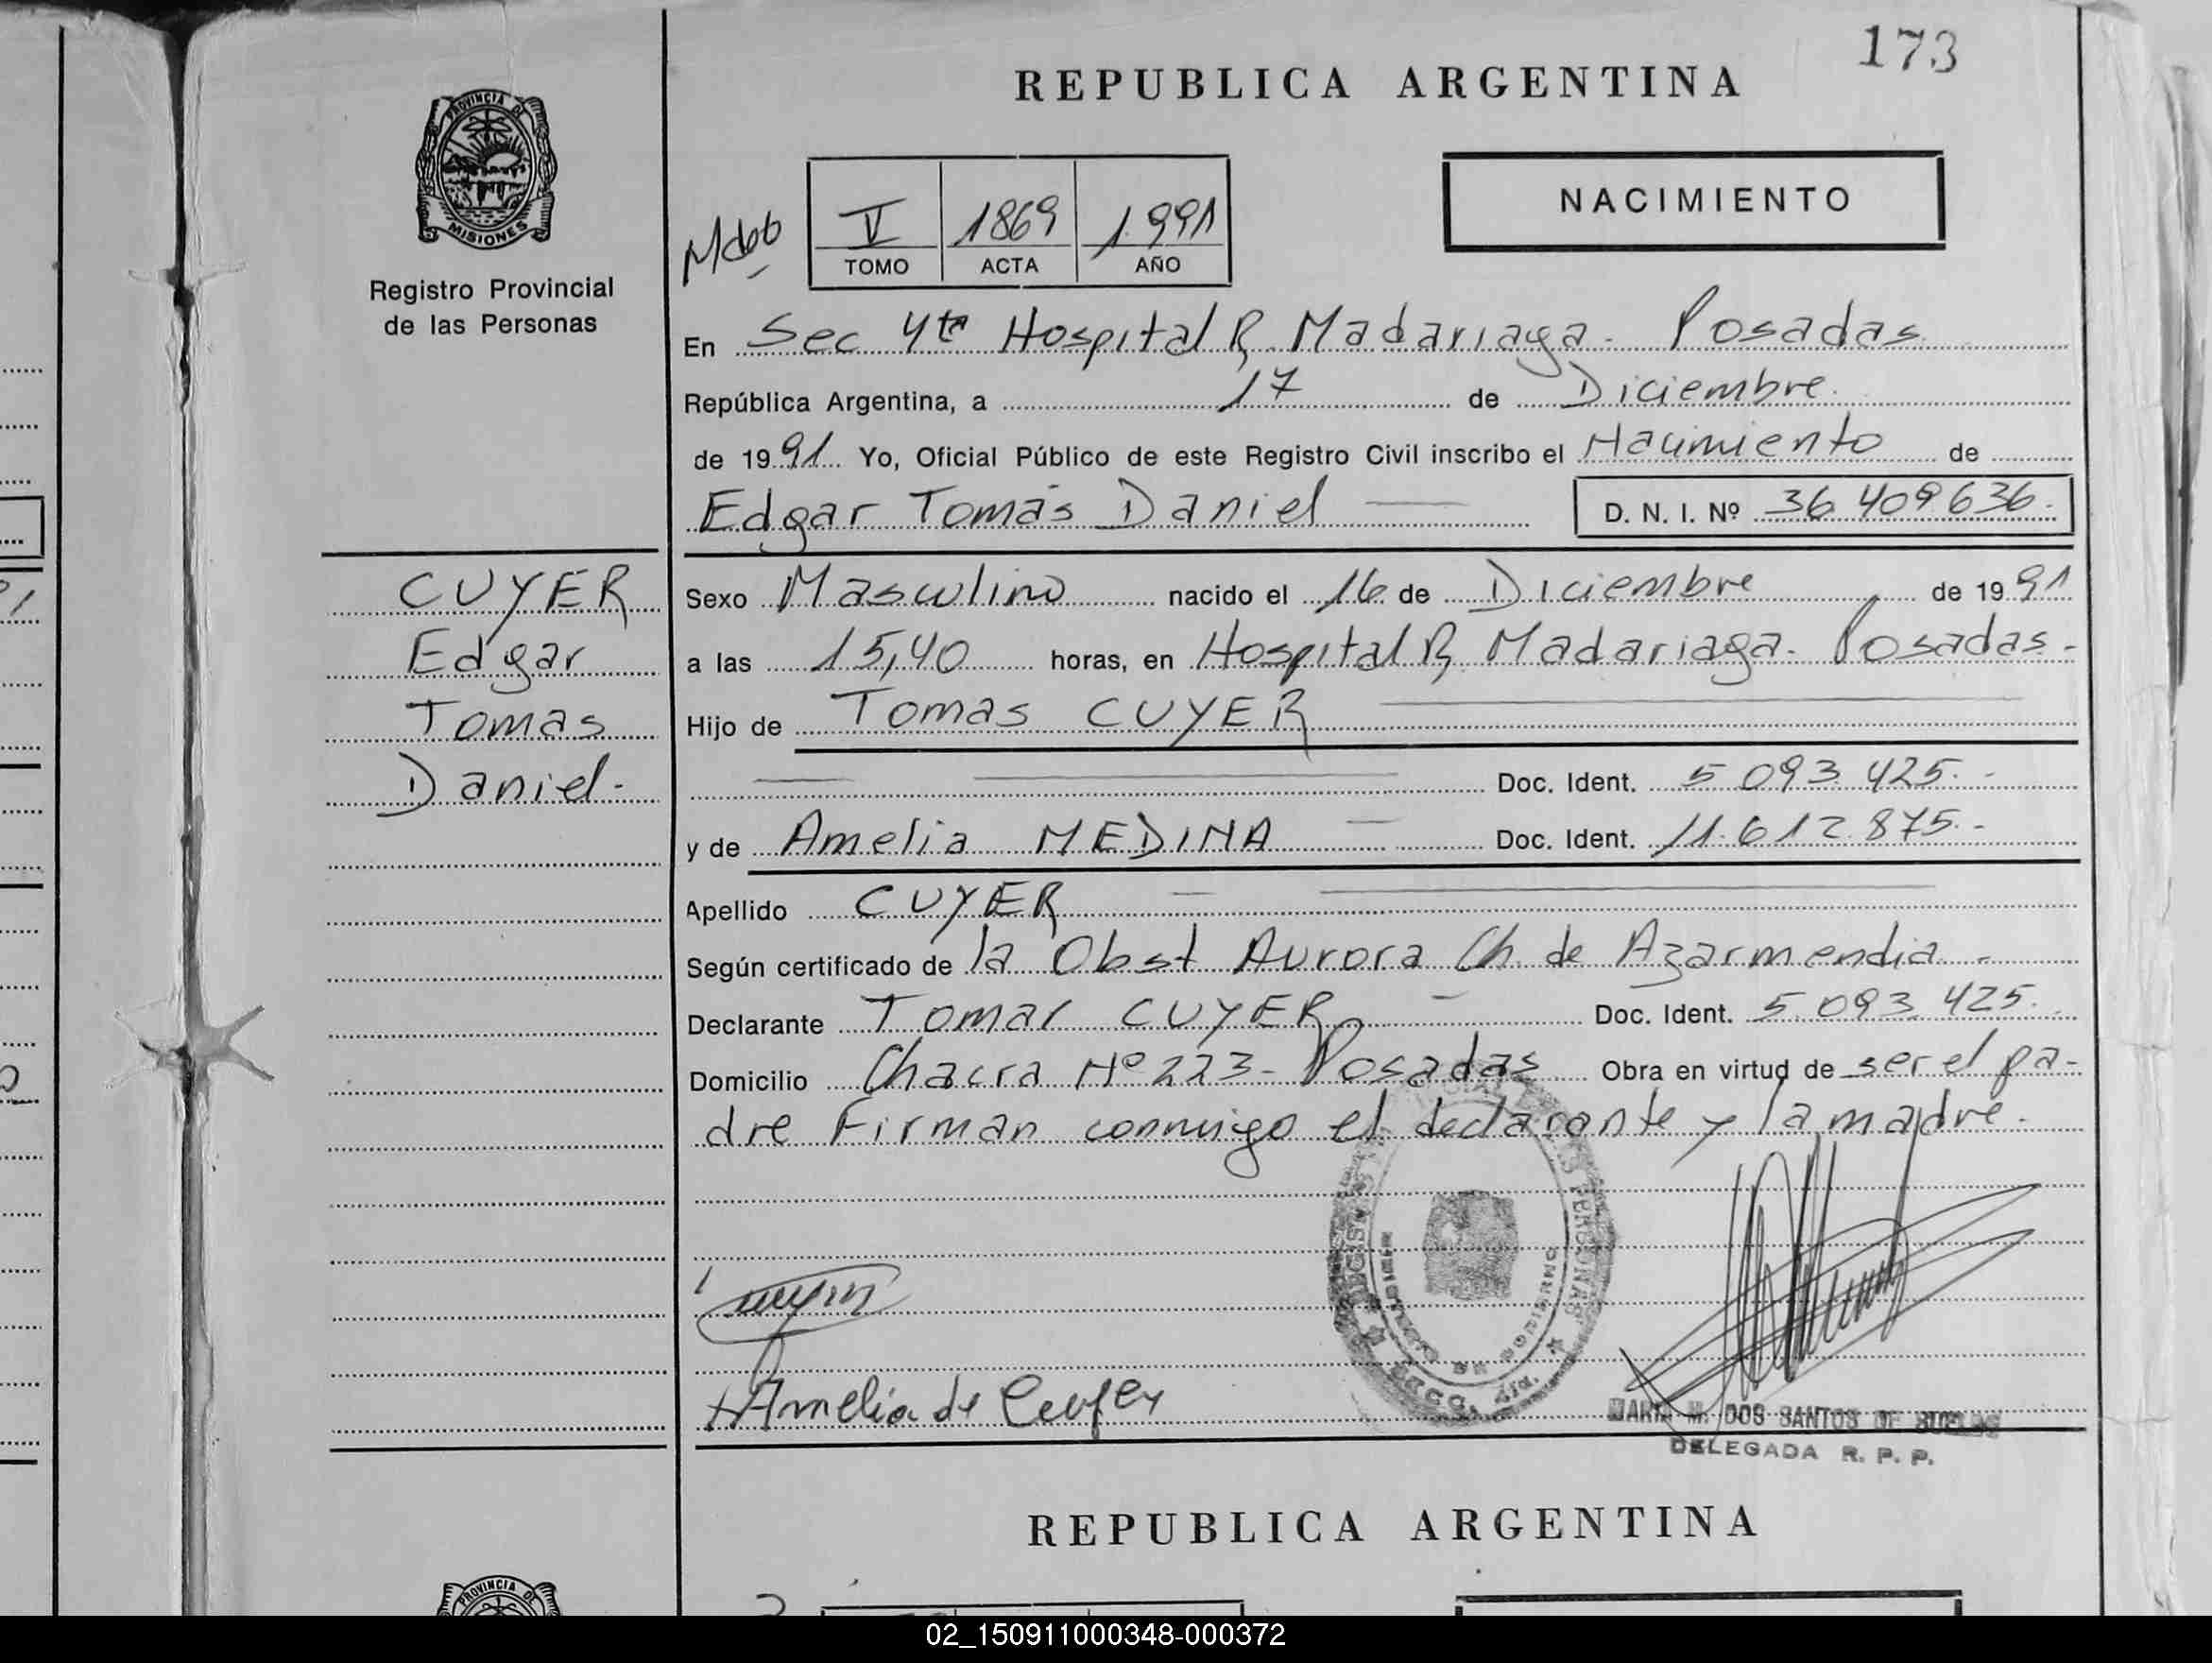 173
REPUBLICA ARGENTINA
PROVINCIA DE
MISIONES
Registro Provincial
de las Personas
NACIMIENTO
V 1869 1.991
TOMO ACTA AÑO
En Sec 4ta Hospital R. Madariaga - Posadas
República Argentina, a 17 de Diciembre.
de 1991 Yo, Oficial Público de este Registro Civil inscribo el Nacimiento de
Edgar Tomás Daniel — D. N. I. Nº 36 409 636.
CUYER
Edgar
Tomas
Daniel.-
Sexo Masculino nacido el 16 de Diciembre de 1991
a las 15,40 horas, en Hospital R. Madariaga - Posadas -
Hijo de Tomas CUYER
Doc. Ident. 5 093 425.-
y de Amelia MEDINA — Doc. Ident. 11.612.875.-
Apellido CUYER
Según certificado de la Obst Aurora Ch. de Azarmendia -
Declarante Tomas CUYER - Doc. Ident. 5.093.425.
Domicilio Chacra Nº 223 - Posadas Obra en virtud de ser el pa-
dre Firman conmigo el declarante y la madre.
Amelia de Cuyer
SECC. 4ta.
DOS SANTOS DE
DELEGADA R. P. P.
REPUBLICA ARGENTINA
PROVINCIA DE
02_150911000348-000372